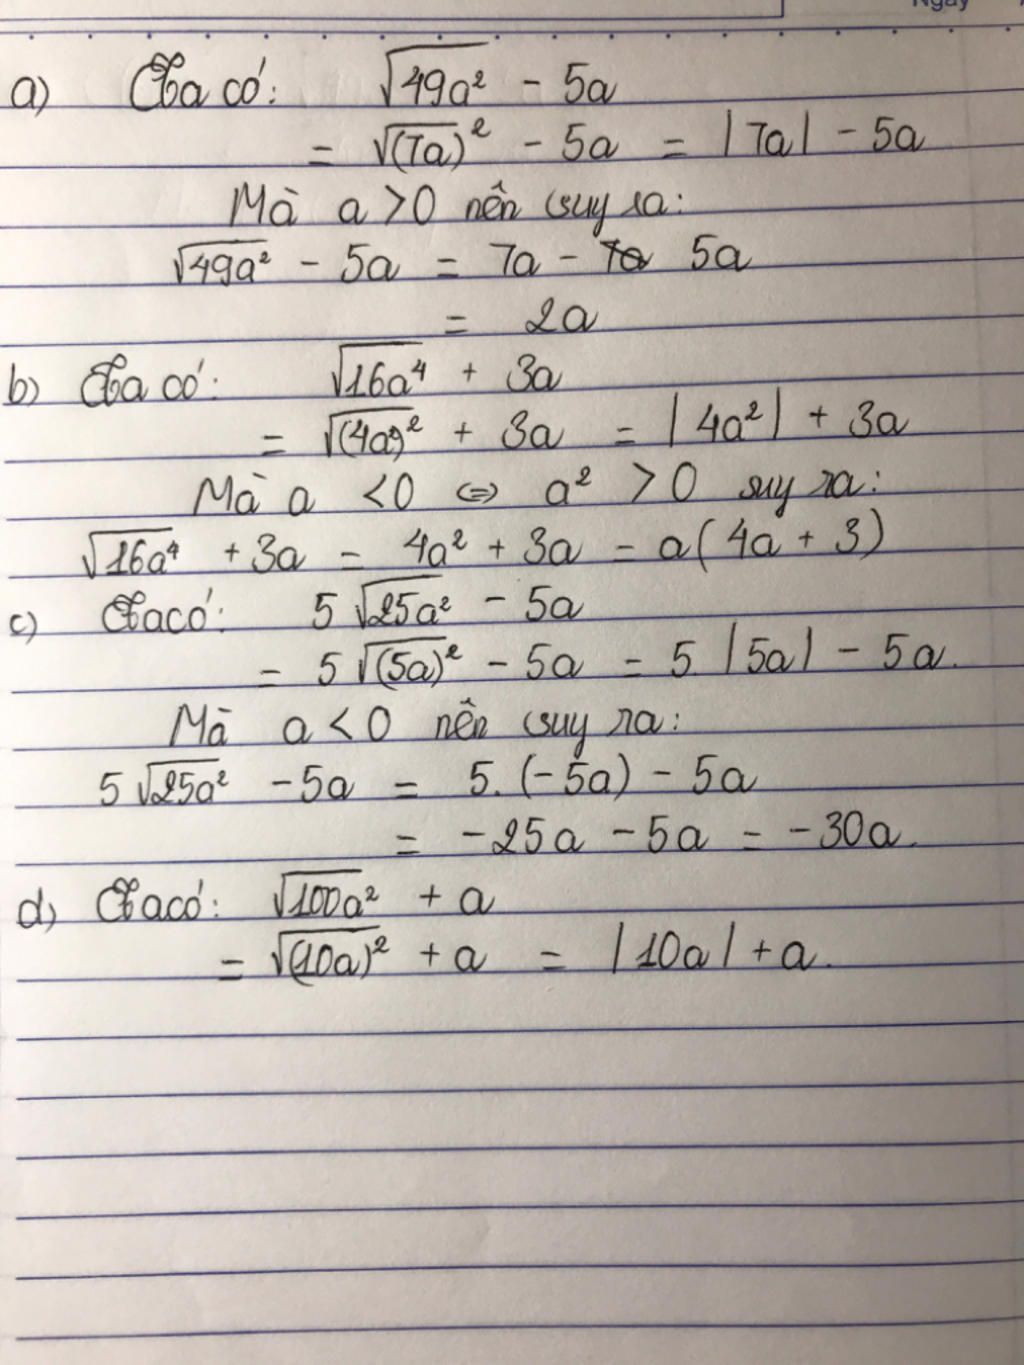 Ngày
a) Ta có: √49a² - 5a
= √(7a)² - 5a = |7a| - 5a
Mà a > 0 nên suy ra:
√49a² - 5a = 7a - 5a
= 2a
b) Ta có: √16a⁴ + 3a
= √(4a²)² + 3a = |4a²| + 3a
Mà a < 0 ⇔ a² > 0 suy ra:
√16a⁴ + 3a = 4a² + 3a = a(4a + 3)
c) Ta có: 5√25a² - 5a
= 5√(5a)² - 5a = 5.|5a| - 5a.
Mà a < 0 nên suy ra:
5√25a² - 5a = 5.(-5a) - 5a
= -25a - 5a = -30a.
d) Ta có: √100a² + a
= √(10a)² + a = |10a| + a.